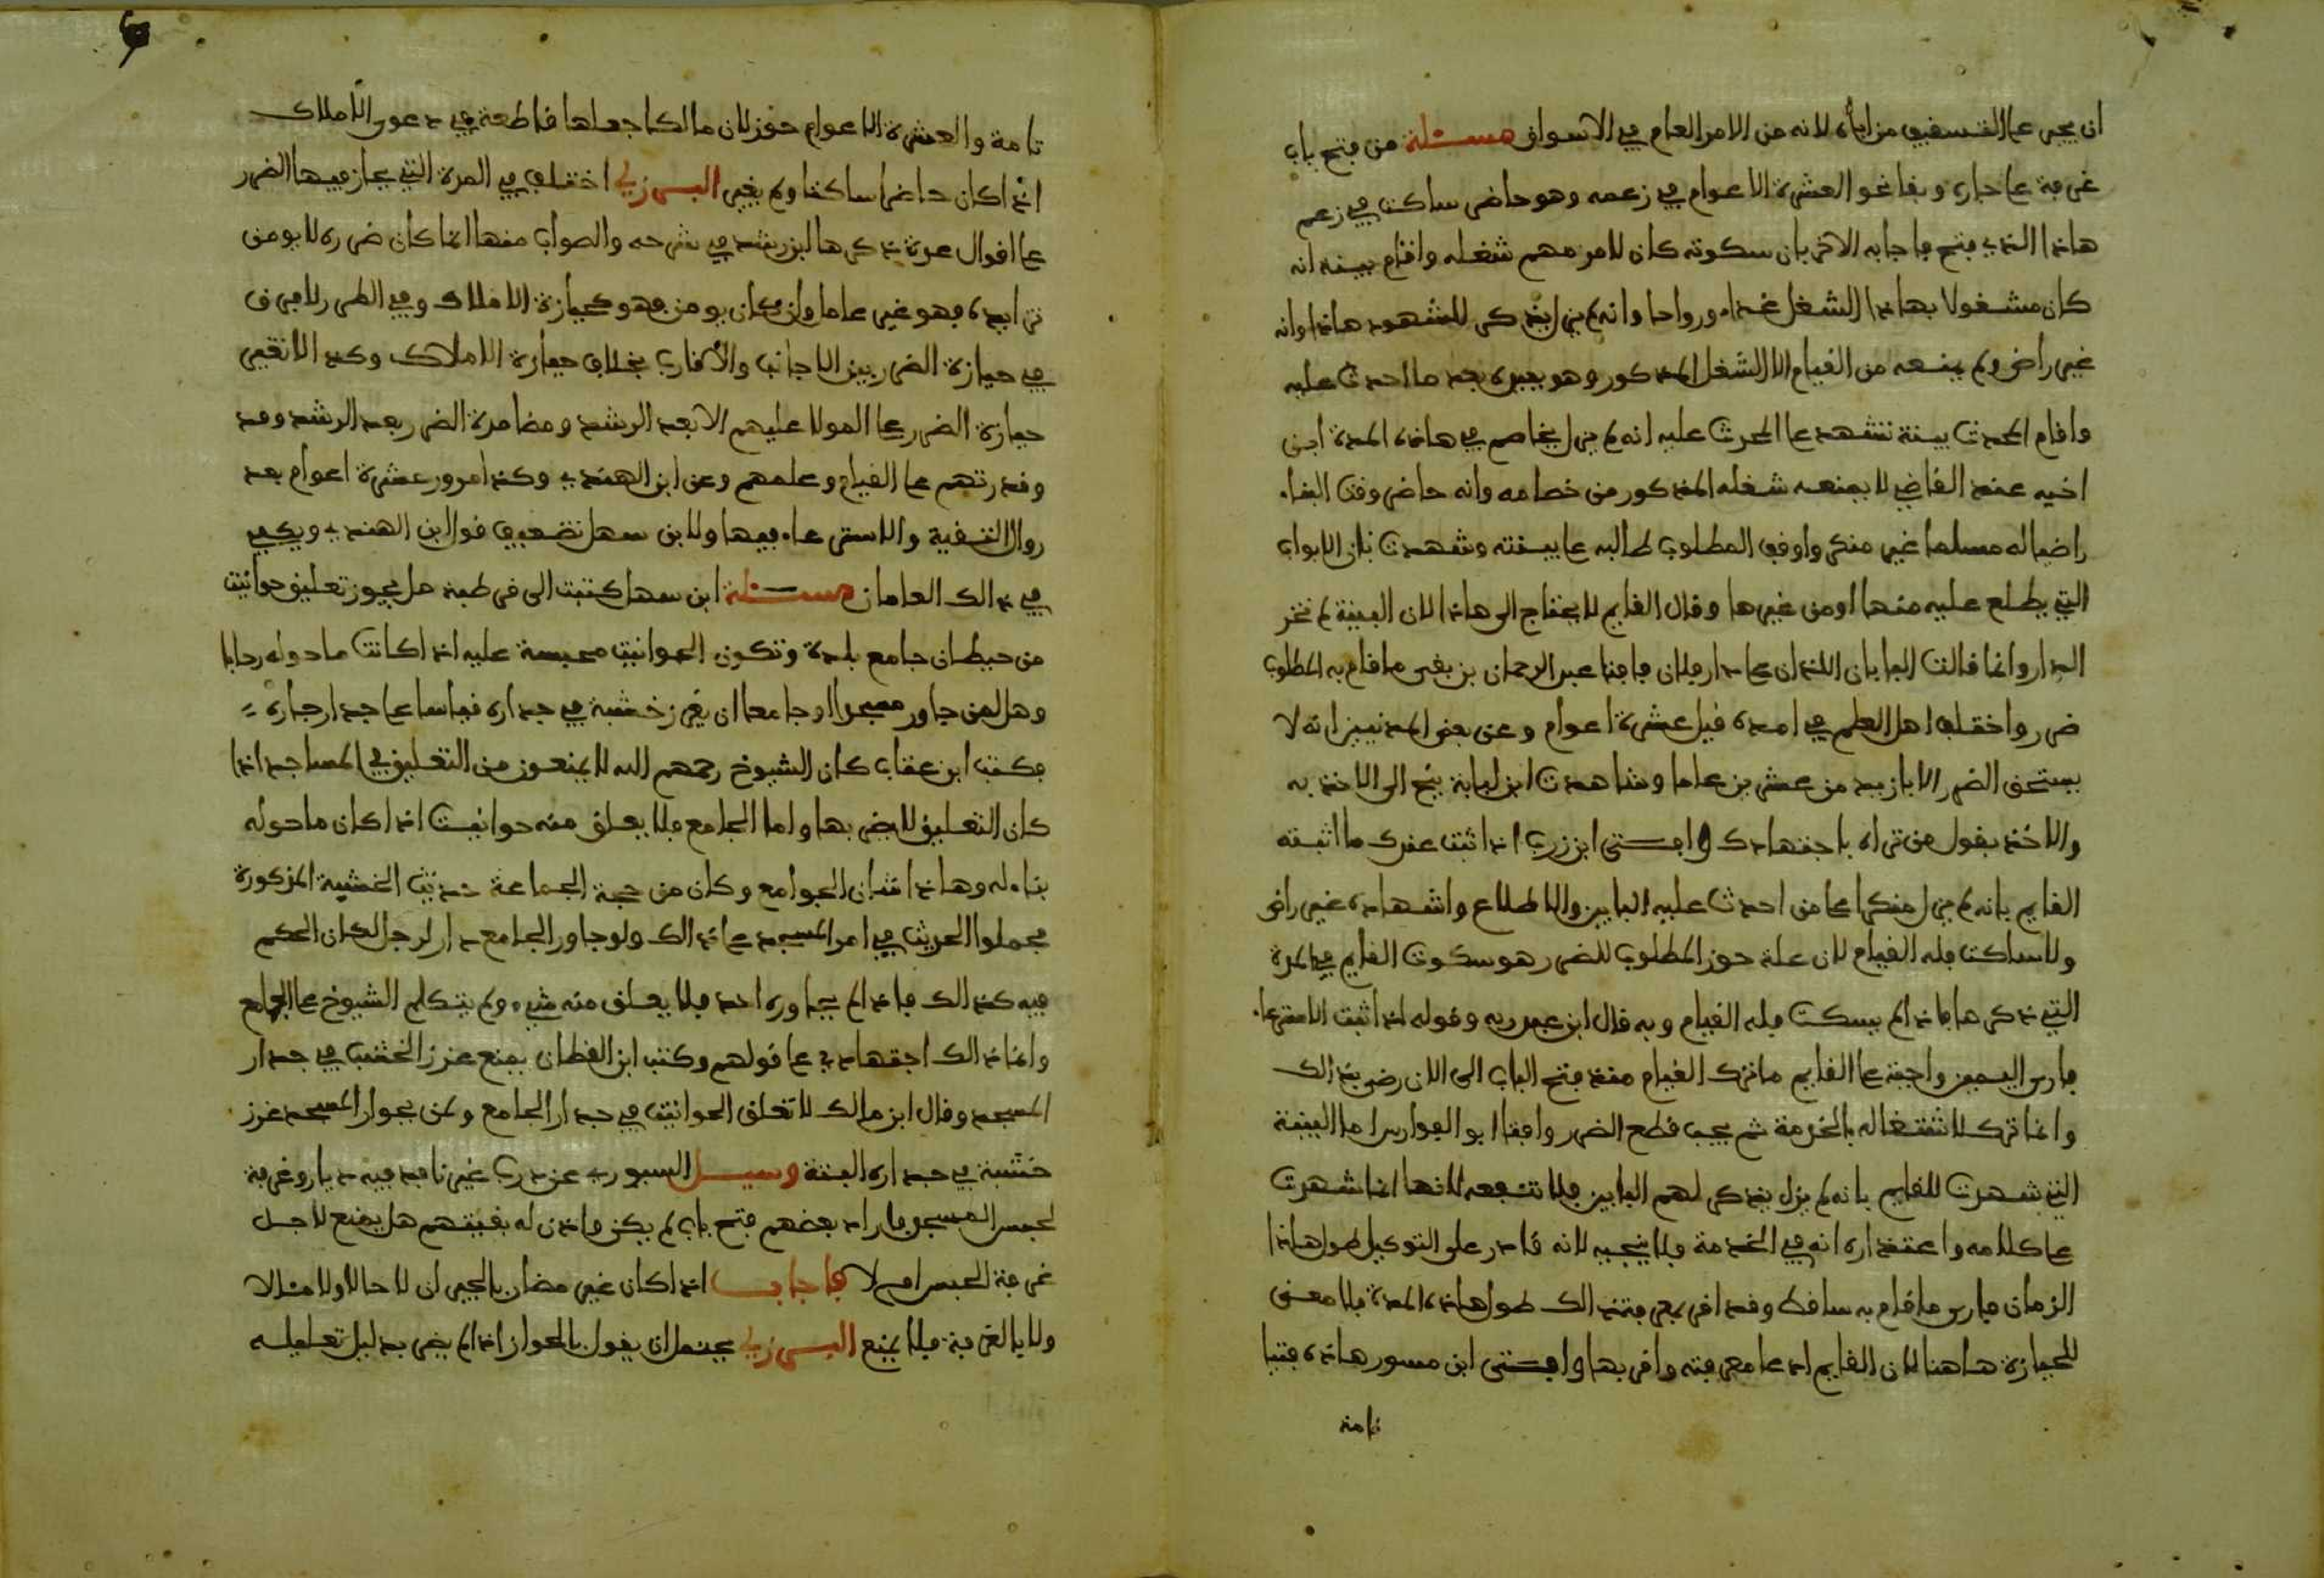 ان يجبر على التسقيف من اباه لانه من الامر العام في الاسواق مسئلة من فتح باب
غرفة على جاره وبقا نحو العشرة الاعوام في زعمه وهو حاضر ساكت في زعم
هاذا الذي فتح فاجابه الاخر بان سكوته كان لامر مهم شغله واقام بينة انه
كان مشغولا بهاذا الشغل غدا ورواحا وانه لم يزل يذكر للشهود هاذا وانه
غير راض ولم يمنعه من القيام الا الشغل المذكور وهو بعد ما احدث عليه
واقام المحدث بينة تشهد على المحدث عليه انه لم يزل يخاصم في هاذه المدة ابن
اخيه عند القاضي لا يمنعه شغله المذكور من خصامه وانه حاضر وقت البناء
راضيا له مسلما غير منكر واوقف المطلوب طالبه على بينته وشهدت بان الابواب
التي يطلع عليه منها او من غيرها وقال القايم لا يحتاج الى هاذا لان البينة لم تحز
الدار وانما قالت البابان اللذان على دار فلان فافتا عبد الرحمان بن بقى ما قام به المطلوب
ضرر واختلف اهل العلم في امده قيل عشرة اعوام وعن بعض المدنيين انه لا
يستحق الضرر الا بازيد من عشرين عاما وشاهدت ابن لبابة ينح الى الاخذ به
والاخذ بقول من تراه باجتهادك وافتى ابن زرب اذا ثبت عندك ما اثبته
القايم بانه لم يزل منكرا على من احدث عليه البابين والاطلاع واشهاده غير راض
ولا ساكت فله القيام لان علة حوز المطلوب للضرر هو سكوت القايم في المدة
التي ذكرها فاذا لم يسكت فله القيام وبه قال ابن عبد ربه وقوله اذا ثبت الاسترعاء
فارى اليمين واجبة على القايم ما ترك القيام منذ فتح الباب الى الان رضى بذالك
وانما ترك لاشتغاله بالخدمة ثم يجب قطع الضرر وافتا ابو الفوارس اما البينة
التي شهدت للقايم بانه لم يزل يذكر لهم البابين فلا تنفعه لانها انما شهدت
على كلامه واعتذاره انه في الخدمة فلا ينجيه لانه قادر على التوكيل طول هاذا
الزمان فارى ما قام به ساقط وقد اقر بمعرفته ذالك طول هاذه المدة فلا معنى
للحيازة هاهنا لان القايم ادعا معرفته واقر بها وافتى ابن مسور هاذه فتيا
تامة
تامة والعشرة الاعوام حوز لان مالكا جعلها قاطعة في دعوى الاملاك
اذا كان حاضرا ساكتا ولم يغير البرزلي اختلف في المدة التي يحاز فيها الضرر
على اقوال عدة ذكرها ابن رشد في شرحه والصواب منها ان ما كان ضرره لا يومن
تزايده فهو غير عامل وان كان يومن فهو كحيازة الاملاك وفي الطرر لا فرق
في حيازة الضرر بين الاجانب والاقارب بخلاف حيازة الاملاك وكذا لا تعتبر
حيازة الضرر على المولا عليهم الا بعد الرشد ومضا مدة الضرر بعد الرشد ومد
وقدرتهم على القيام وعلمهم وعن ابن الهندي وكذا مرور عشرة اعوام بعد
زوال التقية والاسترعاء فيها ولابن سهل تضعيف قول ابن الهندي ويكفي
في ذالك العامان مسئلة ابن سهل كتبت الى قرطبة هل يجوز تعليق حوانيت
من حيطان جامع بلدة وتكون الحوانيت محبسة عليه اذا كانت ما حوله رحابا
وهل لمن جاور مسجدا او جامعا ان يغرز خشبة في جداره قياسا على جدار جاره
فكتب ابن عتاب كان الشيوخ رحمهم الله لا يمنعون من التعليق في المساجد اذا
كان التعليق لا يضر بها واما الجامع فلا يعلق منه حوانيت اذا كان ما حوله
بناء له وهاذا شان الجوامع وكان من حجة الجماعة حديث الخشبة المذكورة
فحملوا الحديث في امر المسجد على ذالك ولو جاور الجامع دار لرجل لكان الحكم
فيه كذالك فاذا لم يجاوره احد فلا يعلق منه شيء ولم يتكلم الشيوخ على الجامع
وانما ذالك اجتهادي على قولهم وكتب ابن القطان يمنع غرز الخشب في جدار
المسجد وقال ابن مالك لا تعلق الحوانيت في جدار الجامع ولمن بجوار المسجد غرز
خشبة في جداره البتة وسيل السيوري عن درب غير نافذ فيه ديار وغرفة
لحبس المسجد فاراد بعضهم فتح باب لم يكن واذن له بقيتهم هل يمنع لاجل
غرفة الحبس ام لا فاجاب اذا كان غير مضار بالجيران لا حالا ولا مئالا
ولا بالغرفة فلا يمنع البرزلي يحتمل ان يقول بالجواز اذا لم يضر بدليل تعليله